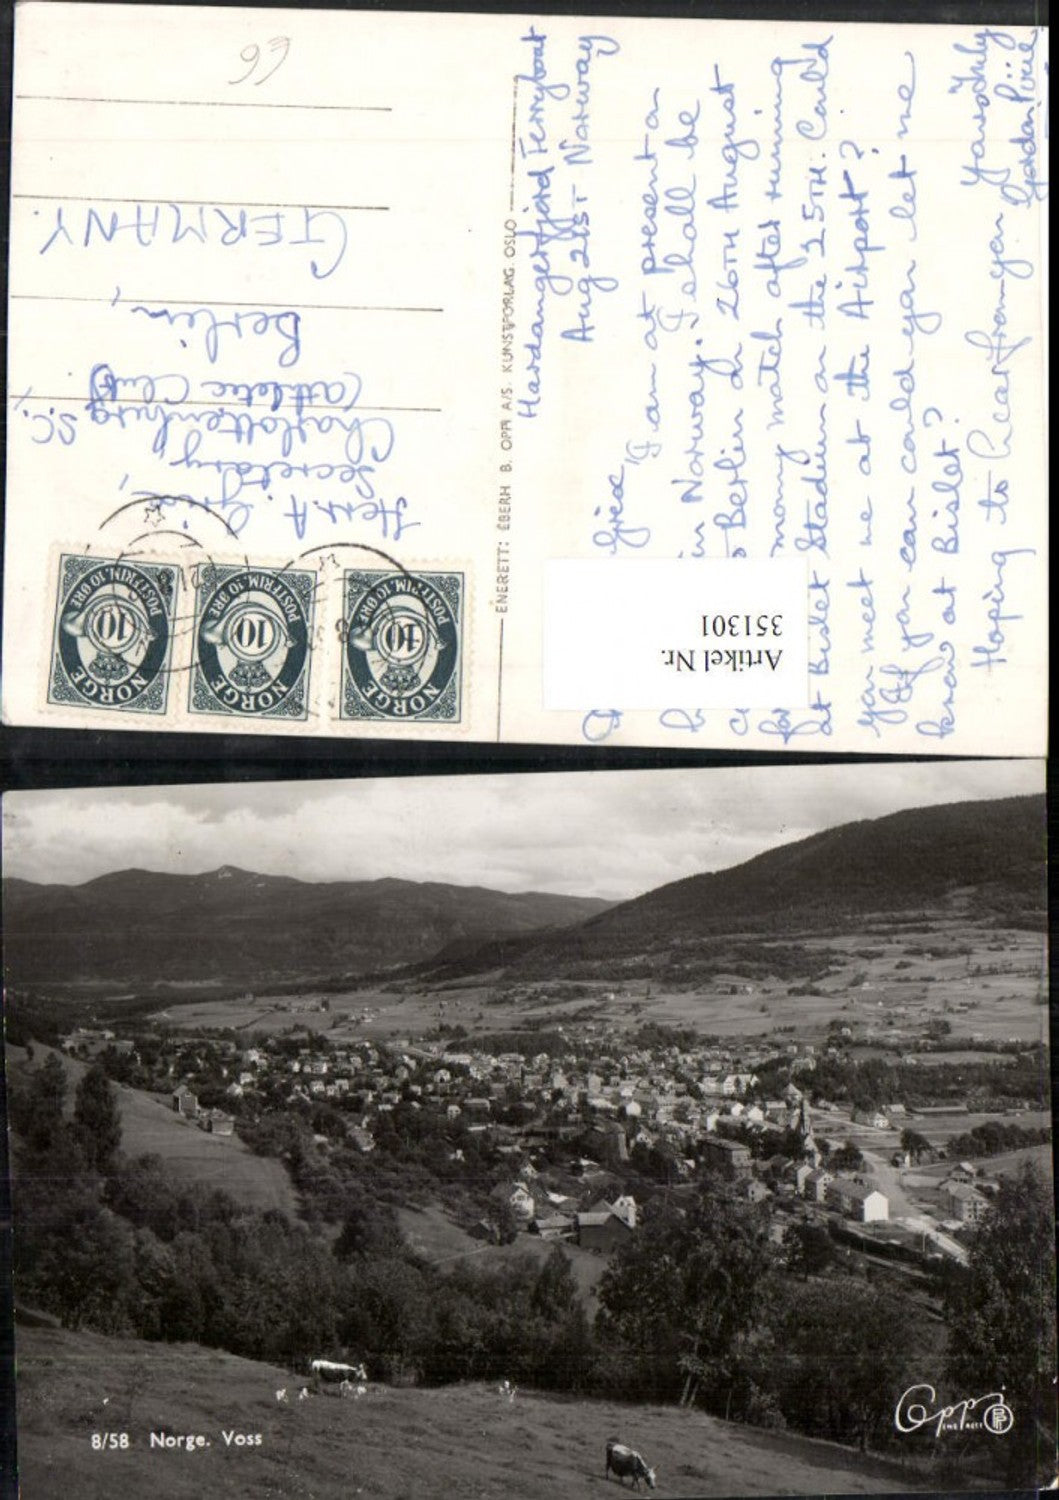 93
Hardangerfjord Ferryboat
Aug 21ST Norway
Giese,
I am at present on
in Norway. I shall be
Berlin on 26TH August
my match after running
at Bislet Stadium on the 25TH. Could
you meet me at the Airport?
If you can could you let me
know at Bislet?
Hoping to hear from you
Yours truly
Gordon Pirie
ENERETT: EBERH B. OPPI A/S. KUNSTFORLAG. OSLO
Herr. A Giese,
Secretary,
Charlottenburg S.C.,
(Athletic Club)
Berlin,
GERMANY.
NORGE
POSTFRIM. 10 ØRE
10
NORGE
POSTFRIM. 10 ØRE
10
NORGE
POSTFRIM. 10 ØRE
10
Artikel Nr.
351301
8/58 Norge. Voss
Oppi
ENERETT